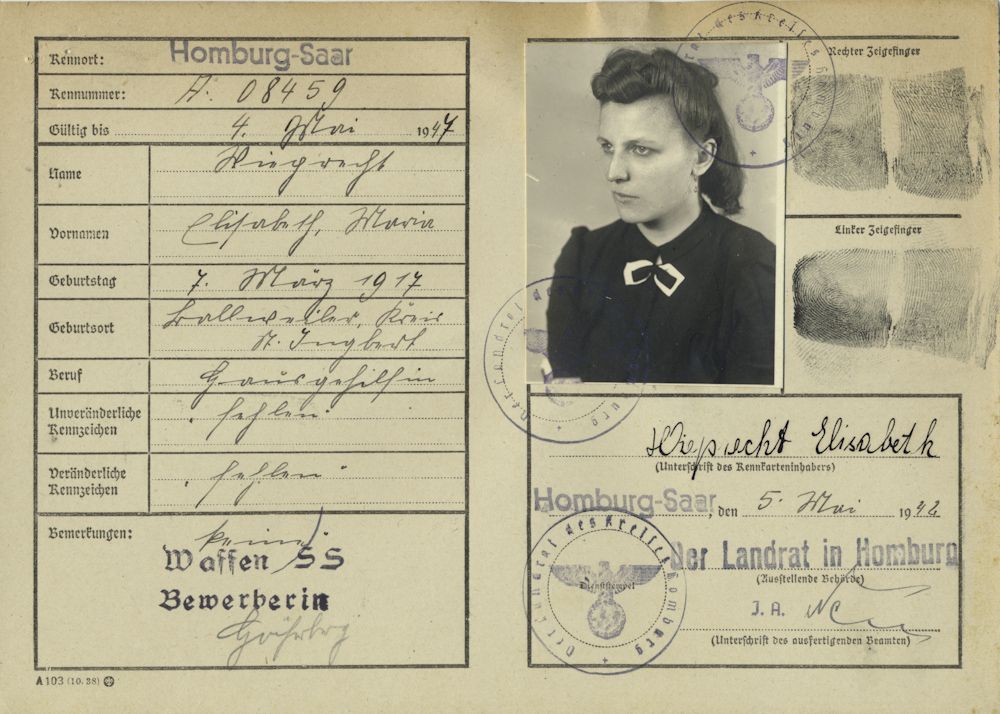 Kennort: Homburg-Saar
Kennummer: A. 08459
Gültig bis 4. Mai 1947
Name Wieprecht
Vornamen Elisabeth, Maria
Geburtstag 7. März 1917
Geburtsort Ballweiler, Kreis
St. Ingbert
Beruf Hausgehilfin
Unveränderliche
Kennzeichen „fehlen"
Veränderliche
Kennzeichen „fehlen"
Bemerkungen: keine
Waffen SS
Bewerberin
A 103 (10. 38)
Rechter Zeigefinger
Linker Zeigefinger
Wieprecht Elisabeth
(Unterschrift des Kennkarteninhabers)
Homburg-Saar, den 5. Mai 1942
Der Landrat in Homburg
(Ausstellende Behörde)
J. A.
(Unterschrift des ausfertigenden Beamten)
Dienststempel
Der Landrat des Kreises Homburg